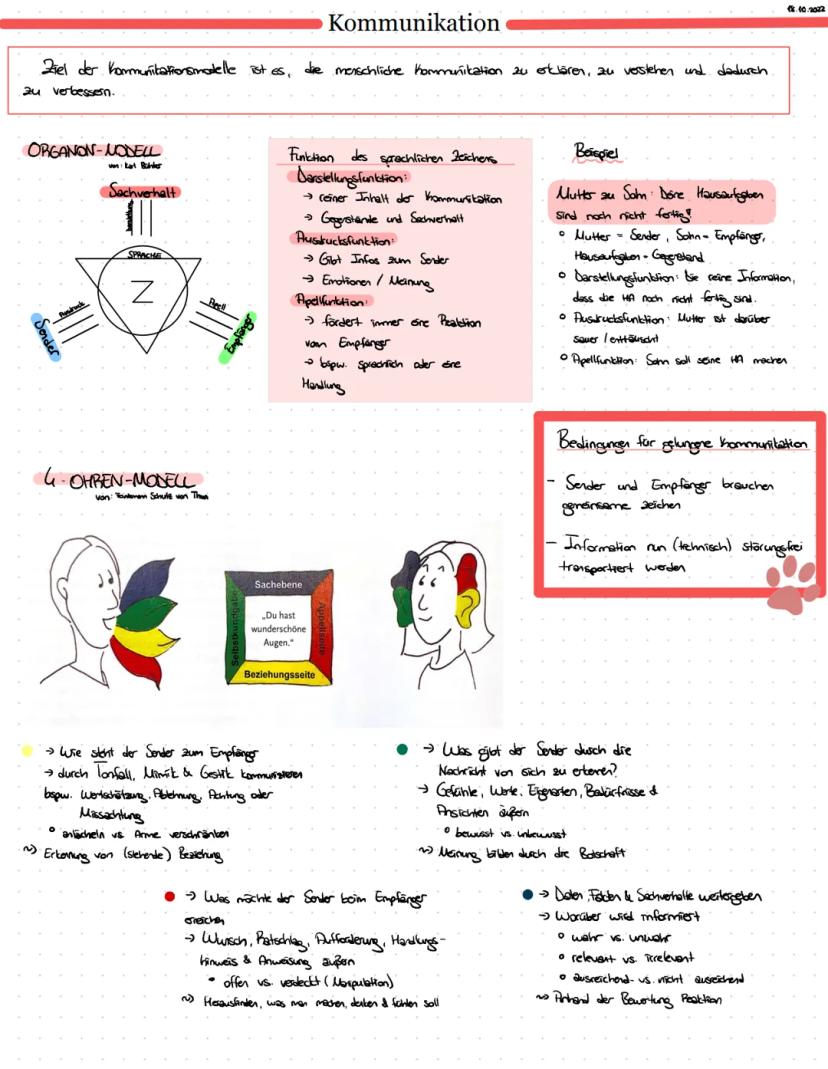 18.10.2022
Kommunikation
Ziel der Kommunikationsmodelle ist es, die menschliche Kommunikation zu erklären, zu verstehen und dadurch
zu verbessern.
ORGANON-MODELL
von: Karl Bühler
Sachverhalt
Darstellung
SPRACHE
Z
Ausdruck
Apell
Sender
Empfänger
Funktion des sprachlichen Zeichens
Darstellungsfunktion:
→ reiner Inhalt der Kommunikation
→ Gegenstände und Sachverhalt
Ausdrucksfunktion:
→ Gibt Infos zum Sender
→ Emotionen / Meinung
Apellfunktion:
→ fordert immer eine Reaktion
vom Empfänger
→ bspw. sprachlich oder eine
Handlung
Beispiel
Mutter zu Sohn: Deine Hausaufgaben
sind noch nicht fertig!
° Mutter = Sender, Sohn = Empfänger,
Hausaufgaben = Gegenstand
° Darstellungsfunktion: Die reine Information,
dass die HA noch nicht fertig sind.
° Ausdrucksfunktion: Mutter ist darüber
sauer / enttäuscht
° Apellfunktion: Sohn soll seine HA machen
Bedingungen für gelungene Kommunikation
- Sender und Empfänger brauchen
gemeinsame Zeichen
- Information nun (technisch) störungsfrei
transportiert werden
4-OHREN-MODELL
von: Schulz von Thun
Sachebene
Selbstkundgabe
„Du hast
wunderschöne
Augen."
Appellseite
Beziehungsseite
→ Wie steht der Sender zum Empfänger
→ durch Tonfall, Mimik & Gestik kommunizieren
bspw. Wertschätzung, Ablehnung, Achtung oder
Missachtung
° anlächeln vs. Arme verschränken
~> Erkennung von (stehende) Beziehung
→ Was gibt der Sender durch die
Nachricht von sich zu erkennen?
→ Gefühle, Werte, Eigenarten, Bedürfnisse &
Ansichten äußern
° bewusst vs. unbewusst
~> Meinung bilden durch die Botschaft
→ Was möchte der Sender beim Empfänger
erreichen
→ Wunsch, Ratschlag, Aufforderung, Handlungs-
hinweis & Anweisung äußern
° offen vs. verdeckt (Manipulation)
~> Herausfinden, was man machen, denken & fühlen soll
→ Daten, Fakten & Sachverhalte weitergeben
→ Worüber wird informiert
° wahr vs. unwahr
° relevant vs. irrelevant
° ausreichend vs. nicht ausreichend
~> Anhand der Bewertung Reaktion